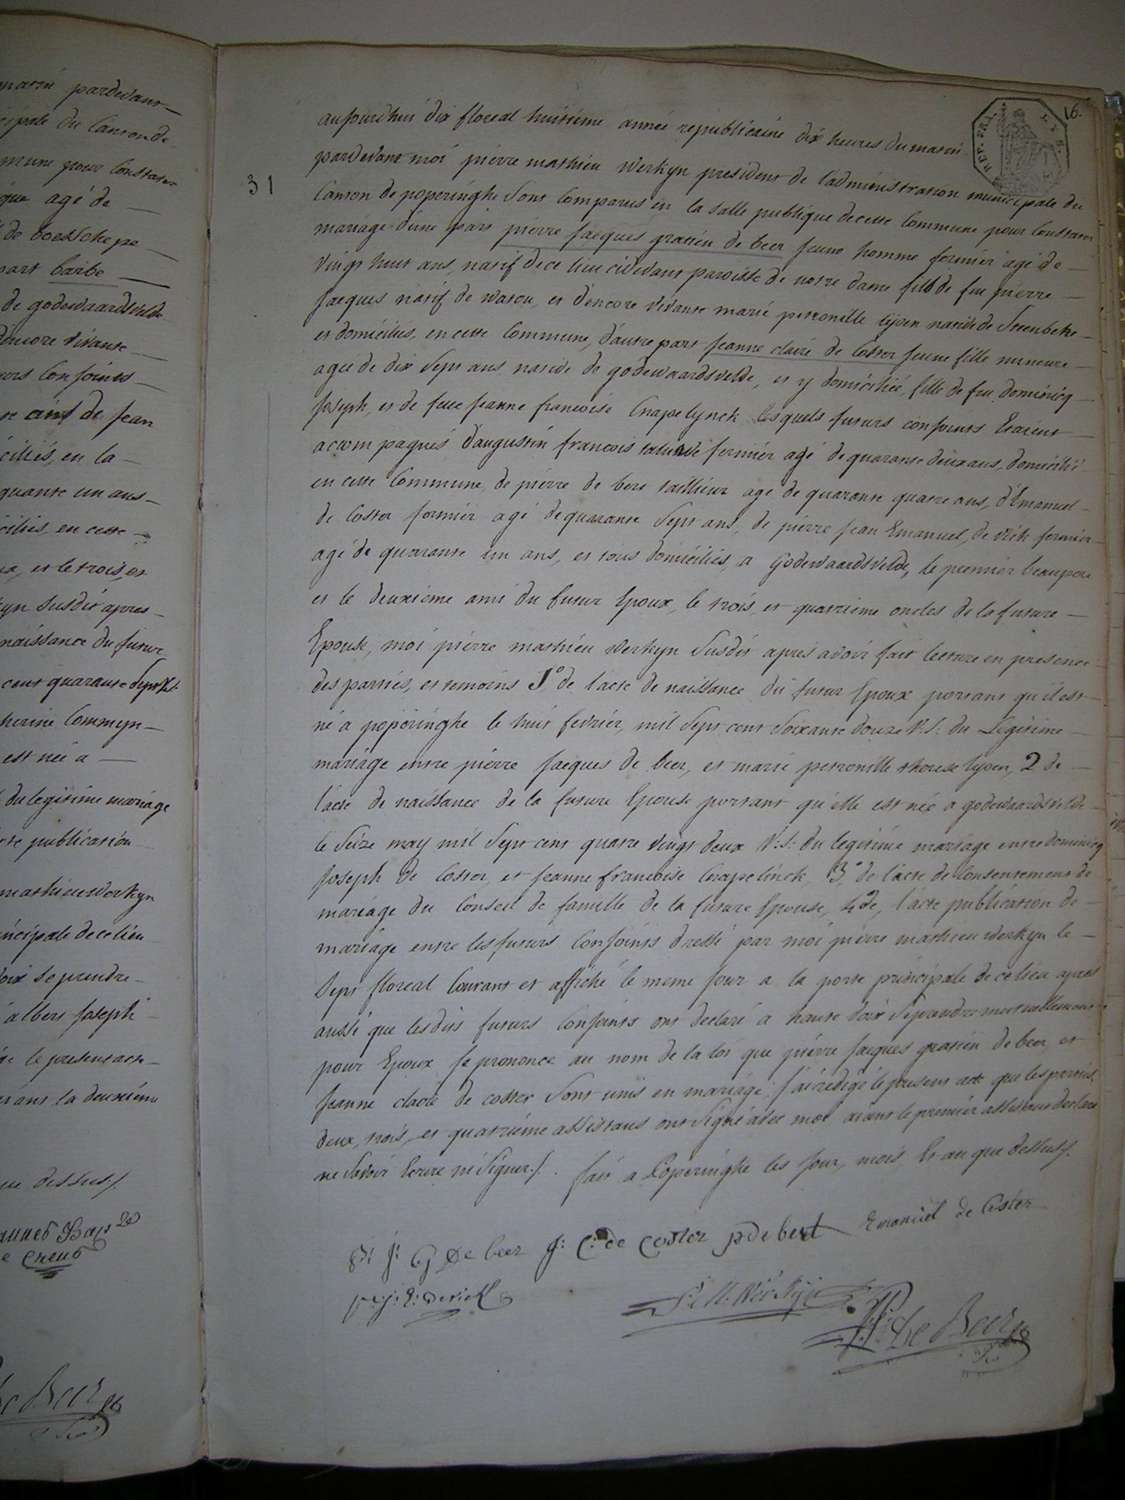 marié pardevant
cipale du Canton de
mmune pour constater
que agé de
de boesschepe
part barbe
de godewaardsvelde
dencore vivante
urs Conjoints
cinq de Jean
ciliés, en la
quante un ans
ciliés, en cette
et le trois, et
kyn susdit apres
naissance du futur
cent quarante sept V.S.
Commyn
est née a
du legitime mariage
publication
mathieu Werkyn
incipale de ce lieu
voix se prendre
albert Joseph
le present acte
la deuxiéme
que dessus/.
de Beer
16.
REP. FRA.
31
aujourdhui dix floreal huitiéme année republicaine dix heures du matin
pardevant moi pierre mathieu Werkyn president de l'administration municipale du
Canton de poperinghe sont Comparus en la salle publique de cette Commune pour Constater
mariage d'une part pierre Jacques gratien de beer jeune homme fermier agé de
vingt huit ans, natif de ce lieu cidevant paroisse de notre dame fils de feu pierre
Jacques natif de watou, et d'encore vivante marie petronille lyoen native de Steenbeke
et domiciliés, en cette Commune, d'autre part Jeanne claire de Coster jeune fille mineure
agée de dix sept ans native de godewaardsvelde, et y domiciliée, fille de feu dominicq
Joseph, et de feue Jeanne francoise Chapelynck lesquels futurs conjoints Etaient
accompagnés d'augustin francois fermier agé de quarante deux ans, domicilié
en cette Commune, de pierre de bert taillieur agé de quarante quatre ans, d'Emanuel
de Coster fermier agé de quarante sept ans, de pierre Jean Emanuel, de rick fermier
agé de quarante un ans, et tous domiciliés, a Godewaardsvelde, le premier beaupere
et le deuxieme ami du futur Epoux, le trois et quatrieme oncles de la future
Epouse, moi pierre mathieu Werkyn susdit apres avoir fait lecture en presence
des parties, et temoins 1° de l'acte de naissance du futur Epoux portant qu'il est
né a poperinghe le huit fevrier, mil sept cent soixante douze V.S: du Legitime
mariage entre pierre Jacques de beer, et marie petronille therese lyoen, 2 de
l'acte de naissance de la future Epouse portant qu'elle est née a godewaardsvelde
le seize may mil sept cent quatre vingt deux V.S: du legitime mariage entre dominicq
Joseph de Coster, et Jeanne francoise Chapelinck, 3° de l'acte de Consentement de
mariage du Conseil de famille de la future Epouse, 4 de, l'acte publication de
mariage entre les futurs Conjoints dressé par moi pierre mathieu Werkyn le
sept floreal Courant et affiché le meme jour a la porte principale de ce lieu apres
aussi que les dits futurs Conjoints ont declaré a haute voix se prendre mutuellement
pour Epoux je prononce au nom de la loi que pierre Jacques gratien de beer, et
Jeanne claire de coster sont unis en mariage, j'ai redigé le present acte que les parties,
deux, trois, et quatriéme assistans ont signé avec moi aiant le premier assistant declaré
ne savoir Ecrire ni signer/. fait a Poperinghe les jour, mois Et an que dessus/.
P: J: G De beer J: C: de Coster p de bert Emanuel de Coster
p: j: E: Derick
P: M: Werkyn
de Beer